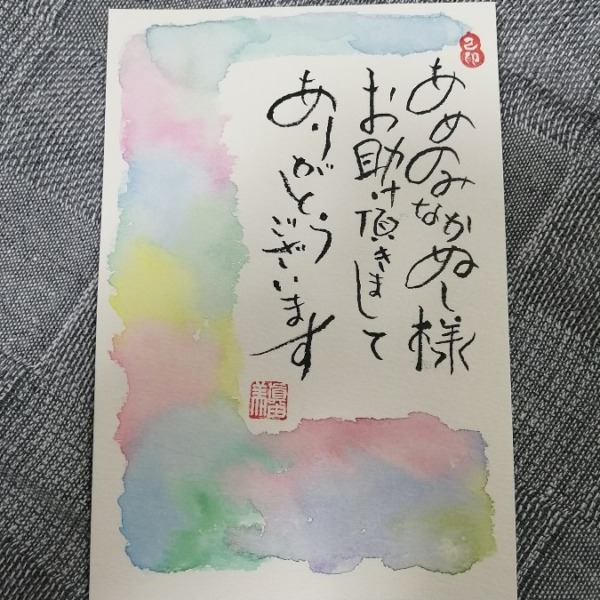 あめのみなかぬし様
お助け頂きまして
ありがとうございます